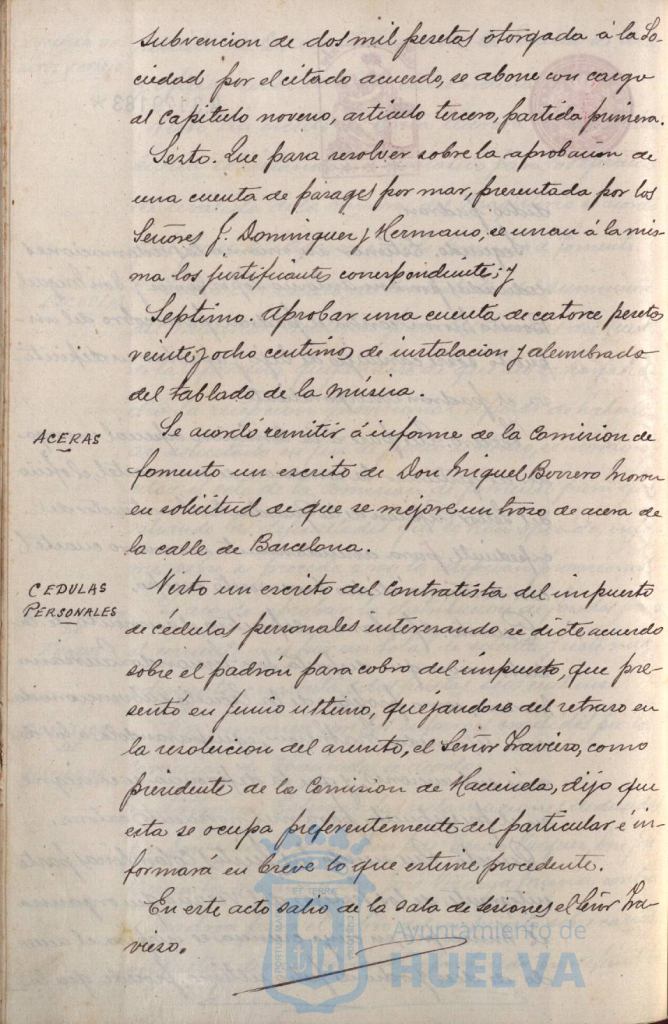 subvencion de dos mil pesetas otorgada á la So-
ciedad por el citado acuerdo, se abone con cargo
al capitulo noveno, articulo tercero, partida primera.
Sexto. Que para resolver sobre la aprobacion de
una cuenta de pasages por mar, presentada por los
Señores J. Dominguez y Hermano, se unan á la mis-
ma los justificantes correspondientes; y
Septimo. Aprobar una cuenta de catorce pesetas
veinte y ocho centimos de instalacion y alumbrado
del tablado de la música.
ACERAS
Se acordó remitir á informe de la Comision de
fomento un escrito de Don Miguel Borrero Moron
en solicitud de que se mejore un trozo de acera de
la calle de Barcelona.
CEDULAS
PERSONALES
Visto un escrito del Contratista del impuesto
de cédulas personales interesando se dicte acuerdo
sobre el padrón para cobro del impuesto, que pre-
sentó en Junio ultimo, quejandose del retraso en
la resolucion del asunto, el Señor Travieso, como
presidente de la Comision de Hacienda, dijo que
esta se ocupa preferentemente del particular é in-
formará en breve lo que estime procedente.
En este acto salio de la sala de sesiones el Señor Tra-
vieso.
Ayuntamiento de
HUELVA